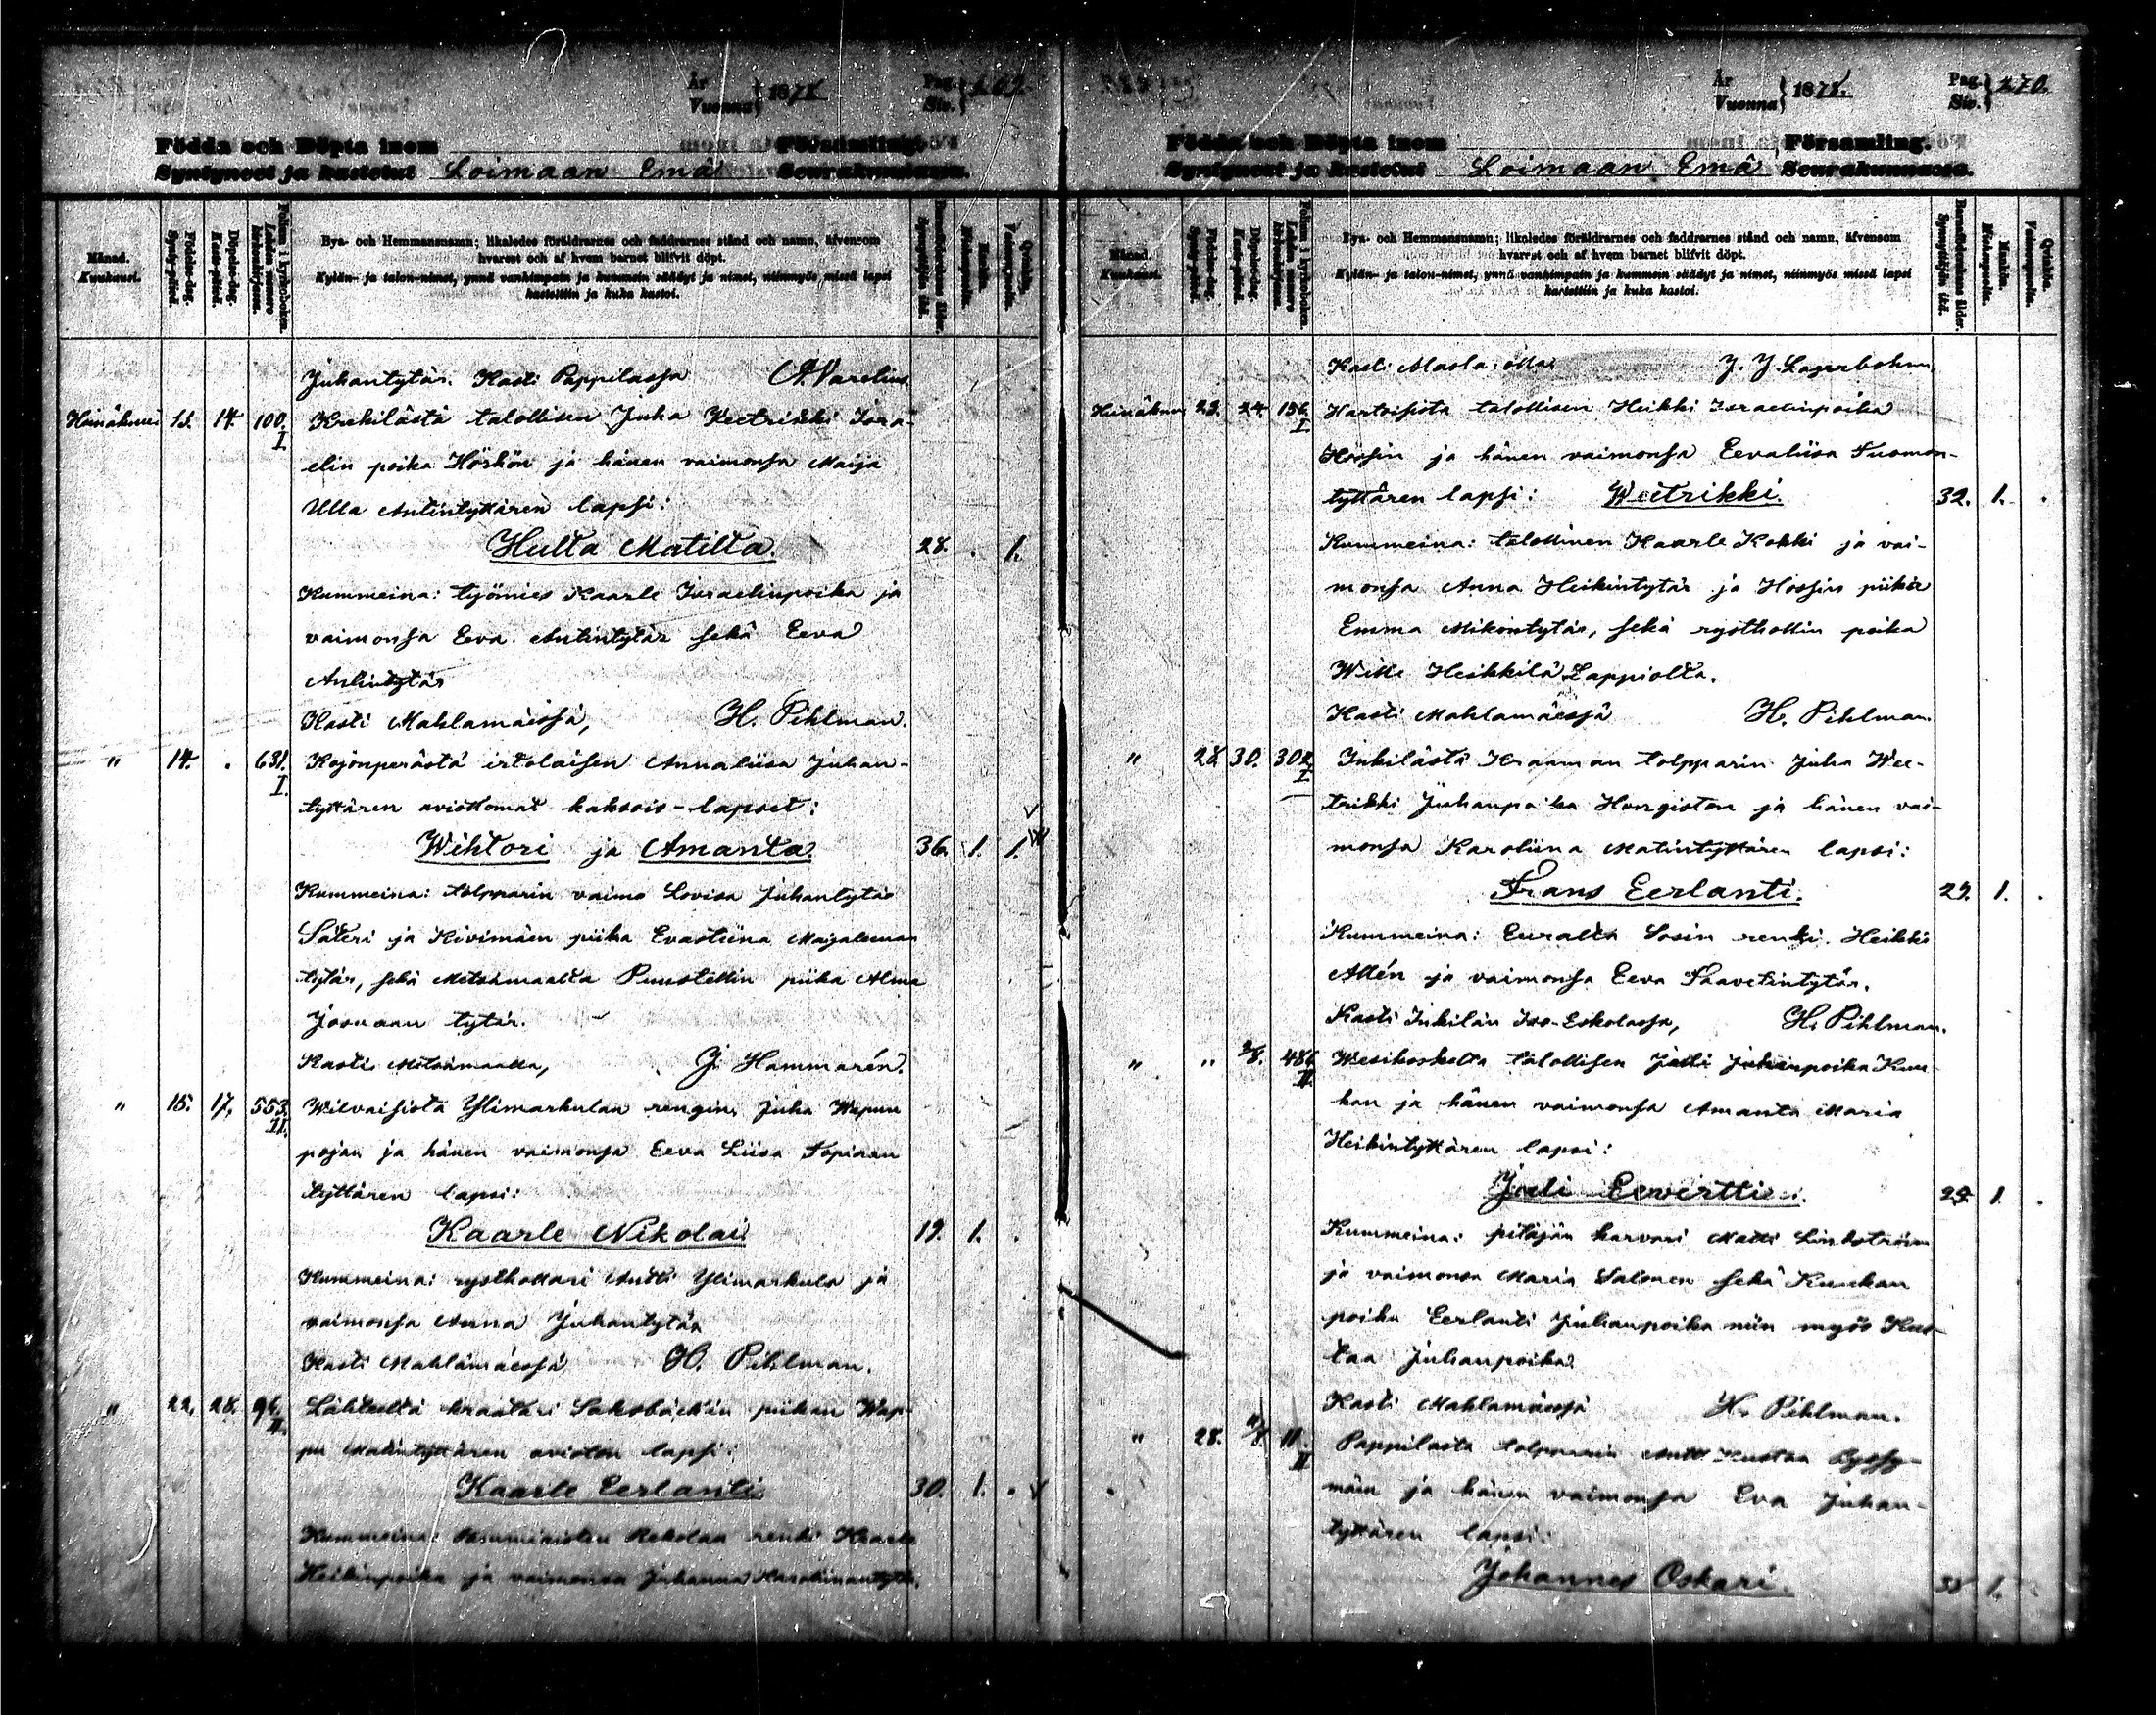 År
Vuonna } 1878
Pag.
Siv. } 269.
Födda och Döpta inom Församling.
Syntyneet ja kastetut Loimaan Emä Seurakunnassa.
Månad.
Kuukausi.
Födelse-dag.
Synty-päivä.
Döpelse-dag.
Kaste-päivä.
Folium i kyrkoboken.
Lehden numero kirkonkirjassa.
Bya- och Hemmansnamn; likaledes föräldrarnes och faddrarnes stånd och namn, äfvensom
hvarest och af hvem barnet blifvit döpt.
Kylän- ja talon-nimet, ynnä vanhimpain ja kummein säädyt ja nimet, niinmyös missä lapsi
kastettiin ja kuka kastoi.
Barnaföderskans ålder.
Synnyttäjän ikä.
Mankön.
Miehenpuolia.
Qvinkön.
Vaimonpuolia.
Juhantytär. Kasti Pappilassa A. Varelius.
Heinäkuu 13. 14. 100. I. Krekilästä talollisen Juha Veetrikki Isra-
elin poika Hörkön ja hänen vaimonsa Maija
Ulla Antintyttären lapsi:
Hulta Matilta. 28. . 1.
Kummeina: työmies Kaarle Israelinpoika ja
vaimonsa Eeva Antintytär sekä Eeva
Antintytär
Kasti Mahlamäessä, H. Pihlman.
" 14. . 631. I. Kojonperästä irtolaisen Annaliisa Juhan-
tyttären aviottomat kaksois-lapset:
Wihtori ja Amanta. 36. 1. 1.
Kummeina: tolpparin vaimo Lovisa Juhantytär
Säteri ja Kivimäen piika Evastiina Maijaleenan
tytär, sekä Metsämaalta Puustellin piika Alma
Joonaan tytär.
Kasti Metsämaalla, J. Hammarén.
" 15. 17. 553. II. Wilvaisista Ylimarkulan rengin Juha Wapun
pojan ja hänen vaimonsa Eeva Liisa Topiaan
tyttären lapsi:
Kaarle Nikolai 19. 1. .
Kummeina: rysthollari Antti Ylimarkula ja
vaimonsa Anna Juhantytär
Kasti Mahlamäessä H. Pihlman.
" 22. 28. 94. II. Lähteeltä kraatari Saksbäckin piikan Wap-
pu Matintyttären avioton lapsi:
Kaarle Eerlanti 30. 1. .
Kummeina: Rekolan renki Kaarle
Heikinpoika ja vaimonsa Juhanna Karoliinantytär.
År
Vuonna } 1878.
Pag.
Siv. } 270.
Födda och Döpta inom Församling.
Syntyneet ja kastetut Loimaan Emä Seurakunnassa.
Månad.
Kuukausi.
Födelse-dag.
Synty-päivä.
Döpelse-dag.
Kaste-päivä.
Folium i kyrkoboken.
Lehden numero kirkonkirjassa.
Bya- och Hemmansnamn; likaledes föräldrarnes och faddrarnes stånd och namn, äfvensom
hvarest och af hvem barnet blifvit döpt.
Kylän- ja talon-nimet, ynnä vanhimpain ja kummein säädyt ja nimet, niinmyös missä lapsi
kastettiin ja kuka kastoi.
Barnaföderskans ålder.
Synnyttäjän ikä.
Mankön.
Miehenpuolia.
Qvinkön.
Vaimonpuolia.
Kasti J. J. Lagerbohm.
Heinäkuu 23. 24. 156. I. Kartoisista talollisen Heikki Israelinpoika
Hossin ja hänen vaimonsa Eevaliisa Tuomon-
tyttären lapsi: Weetrikki. 32. 1. .
Kummeina: talollinen Kaarle Kokki ja vai-
monsa Anna Heikintytär ja Hossin piika
Emma Mikontytär, sekä rysthollin poika
Wille Heikkilä Lappiolta.
Kasti Mahlamäessä H. Pihlman.
" 28. 30. 302. I. Inkilästä Kraaman tolpparin Juha Wee-
trikki Juhanpoika Hongiston ja hänen vai-
monsa Karoliina Matintyttären lapsi:
Frans Eerlanti. 29. 1. .
Kummeina: Euralta Sosin renki Heikki
Allén ja vaimonsa Eeva Taavetintytär.
Kasti Inkilän Iso-Eskolassa, H. Pihlman.
" " 2/8. 486. II. Wesikoskelta talollisen Juhanpoika
kan ja hänen vaimonsa Amanta Maria
Heikintyttären lapsi:
Eevertti. 29. 1. .
Kummeina: pitäjän karvari Matti Lindström
ja vaimonsa Maria Salonen sekä
poika Eerlanti Juhanpoika niin myös Kus-
taa Juhanpoika
Kasti Mahlamäessä H. Pihlman.
" 28. 4/8. 11. II. Pappilasta tolpparin Antti Kustaa Ryssy-
mäen ja hänen vaimonsa Eva Juhan-
tyttären lapsi:
Johannes Oskari. 35 1.